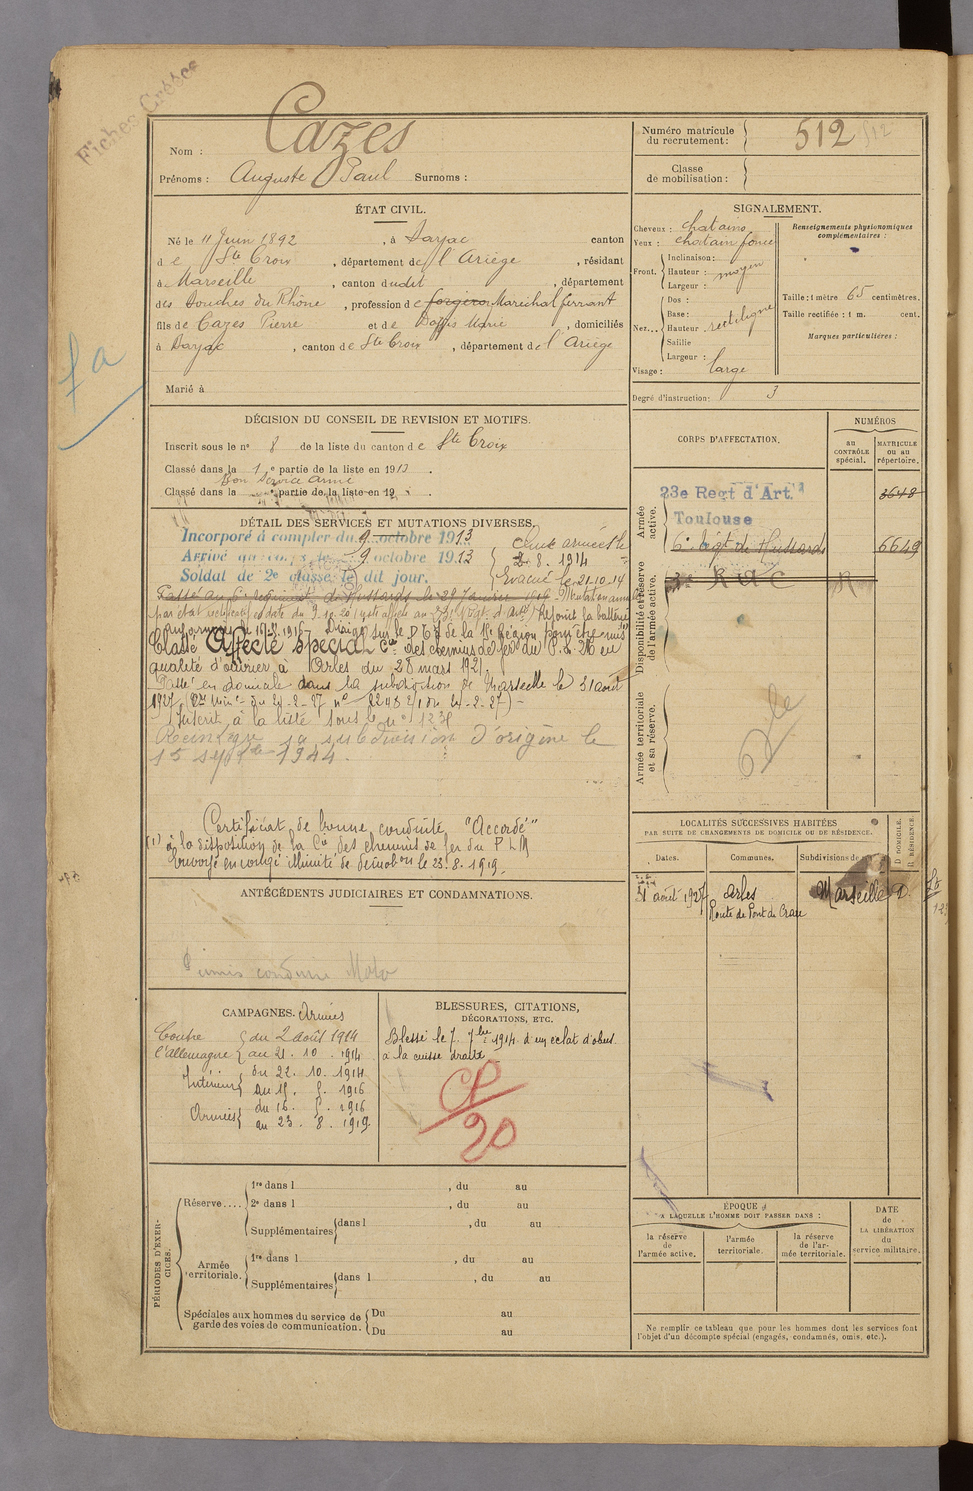 Fiches Créées
Nom : Cazes
Prénoms : Auguste Paul Surnoms :
Numéro matricule du recrutement : 512
Classe de mobilisation :
ÉTAT CIVIL.
Né le 11 Juin 1892, à canton
de Ste Croix, département de l'Ariège, résidant
à Marseille, canton dudit, département
des Bouches du Rhône, profession de forgeron Maréchal ferrant
fils de Cazes Pierre et de Marie, domiciliés
à, canton de Ste Croix, département de l'Ariège
Marié à
SIGNALEMENT.
Cheveux : chatains
Yeux : chatain foncé
Front. Inclinaison :
Hauteur : moyen
Largeur :
Nez... Dos :
Base :
Hauteur rectiligne
Saillie
Largeur :
Visage : large
Renseignements physionomiques complémentaires :
Taille : 1 mètre 65 centimètres.
Taille rectifiée : 1 m. cent.
Marques particulières :
Degré d'instruction : 3
fa
DÉCISION DU CONSEIL DE REVISION ET MOTIFS.
Inscrit sous le n° 8 de la liste du canton de Ste Croix
Classé dans la 1e partie de la liste en 1913.
Bon service armé
Classé dans la e partie de la liste en 19
DÉTAIL DES SERVICES ET MUTATIONS DIVERSES.
Incorporé à compter du 9 octobre 1913
Arrivé au corps le 9 octobre 1913
Soldat de 2e classe le dit jour.
aux armées le
2. 8. 1914
Evacué le 21-10-14
Passé au 6e régiment de Hussards le
Rejoint la batterie
Classé Affecté Spécial Cie des chemins de fer du P.L.M en
qualité d'ouvrier à Arles du 28 mars 1921.
Passé en domicile dans la subdivision de Marseille le 31 août
1927
Inscrit à la liste sous le n° 1238
Réintégré sa subdivision d'origine le
15 septbre 1944.
Certificat de bonne conduite "Accordé"
(1) à la disposition de la Cie des chemins de fer du P L M
Envoyé en congé illimité de démobon le 23.8.1919.
CORPS D'AFFECTATION.
NUMÉROS
au CONTRÔLE spécial.
MATRICULE ou au répertoire.
Armée active.
23e Regt d'Art.
Toulouse
3648
6e Régt de Hussards
6649
Disponibilité et réserve de l'armée active.
Armée territoriale et sa réserve.
LOCALITÉS SUCCESSIVES HABITÉES
PAR SUITE DE CHANGEMENTS DE DOMICILE OU DE RÉSIDENCE.
Dates.
Communes.
Subdivisions de
D. DOMICILE.
R. RÉSIDENCE.
31 août 1927 Arles Marseille D.
Route de Pont de Crau
ANTÉCÉDENTS JUDICIAIRES ET CONDAMNATIONS.
Permis conduire Moto
CAMPAGNES.
Armées
Contre l'Allemagne
du 2 août 1914
au 21. 10. 1914
Intérieur
du 22. 10. 1914
au 15. 5. 1916
Armées
du 16. 5. 1916
au 23. 8. 1919
BLESSURES, CITATIONS,
DÉCORATIONS, ETC.
Blessé le 7. 7bre 1914 d'un éclat d'obus
à la cuisse droite
CP
20
PÉRIODES D'EXERCICES.
Réserve....
1re dans l, du au
2e dans l, du au
Supplémentaires dans l, du au
Armée territoriale.
1re dans l, du au
Supplémentaires dans l, du au
Spéciales aux hommes du service de garde des voies de communication.
Du au
Du au
ÉPOQUE
A LAQUELLE L'HOMME DOIT PASSER DANS :
la réserve de l'armée active.
l'armée territoriale.
la réserve de l'armée territoriale.
DATE de LA LIBÉRATION du service militaire.
Ne remplir ce tableau que pour les hommes dont les services font
l'objet d'un décompte spécial (engagés, condamnés, omis, etc.).